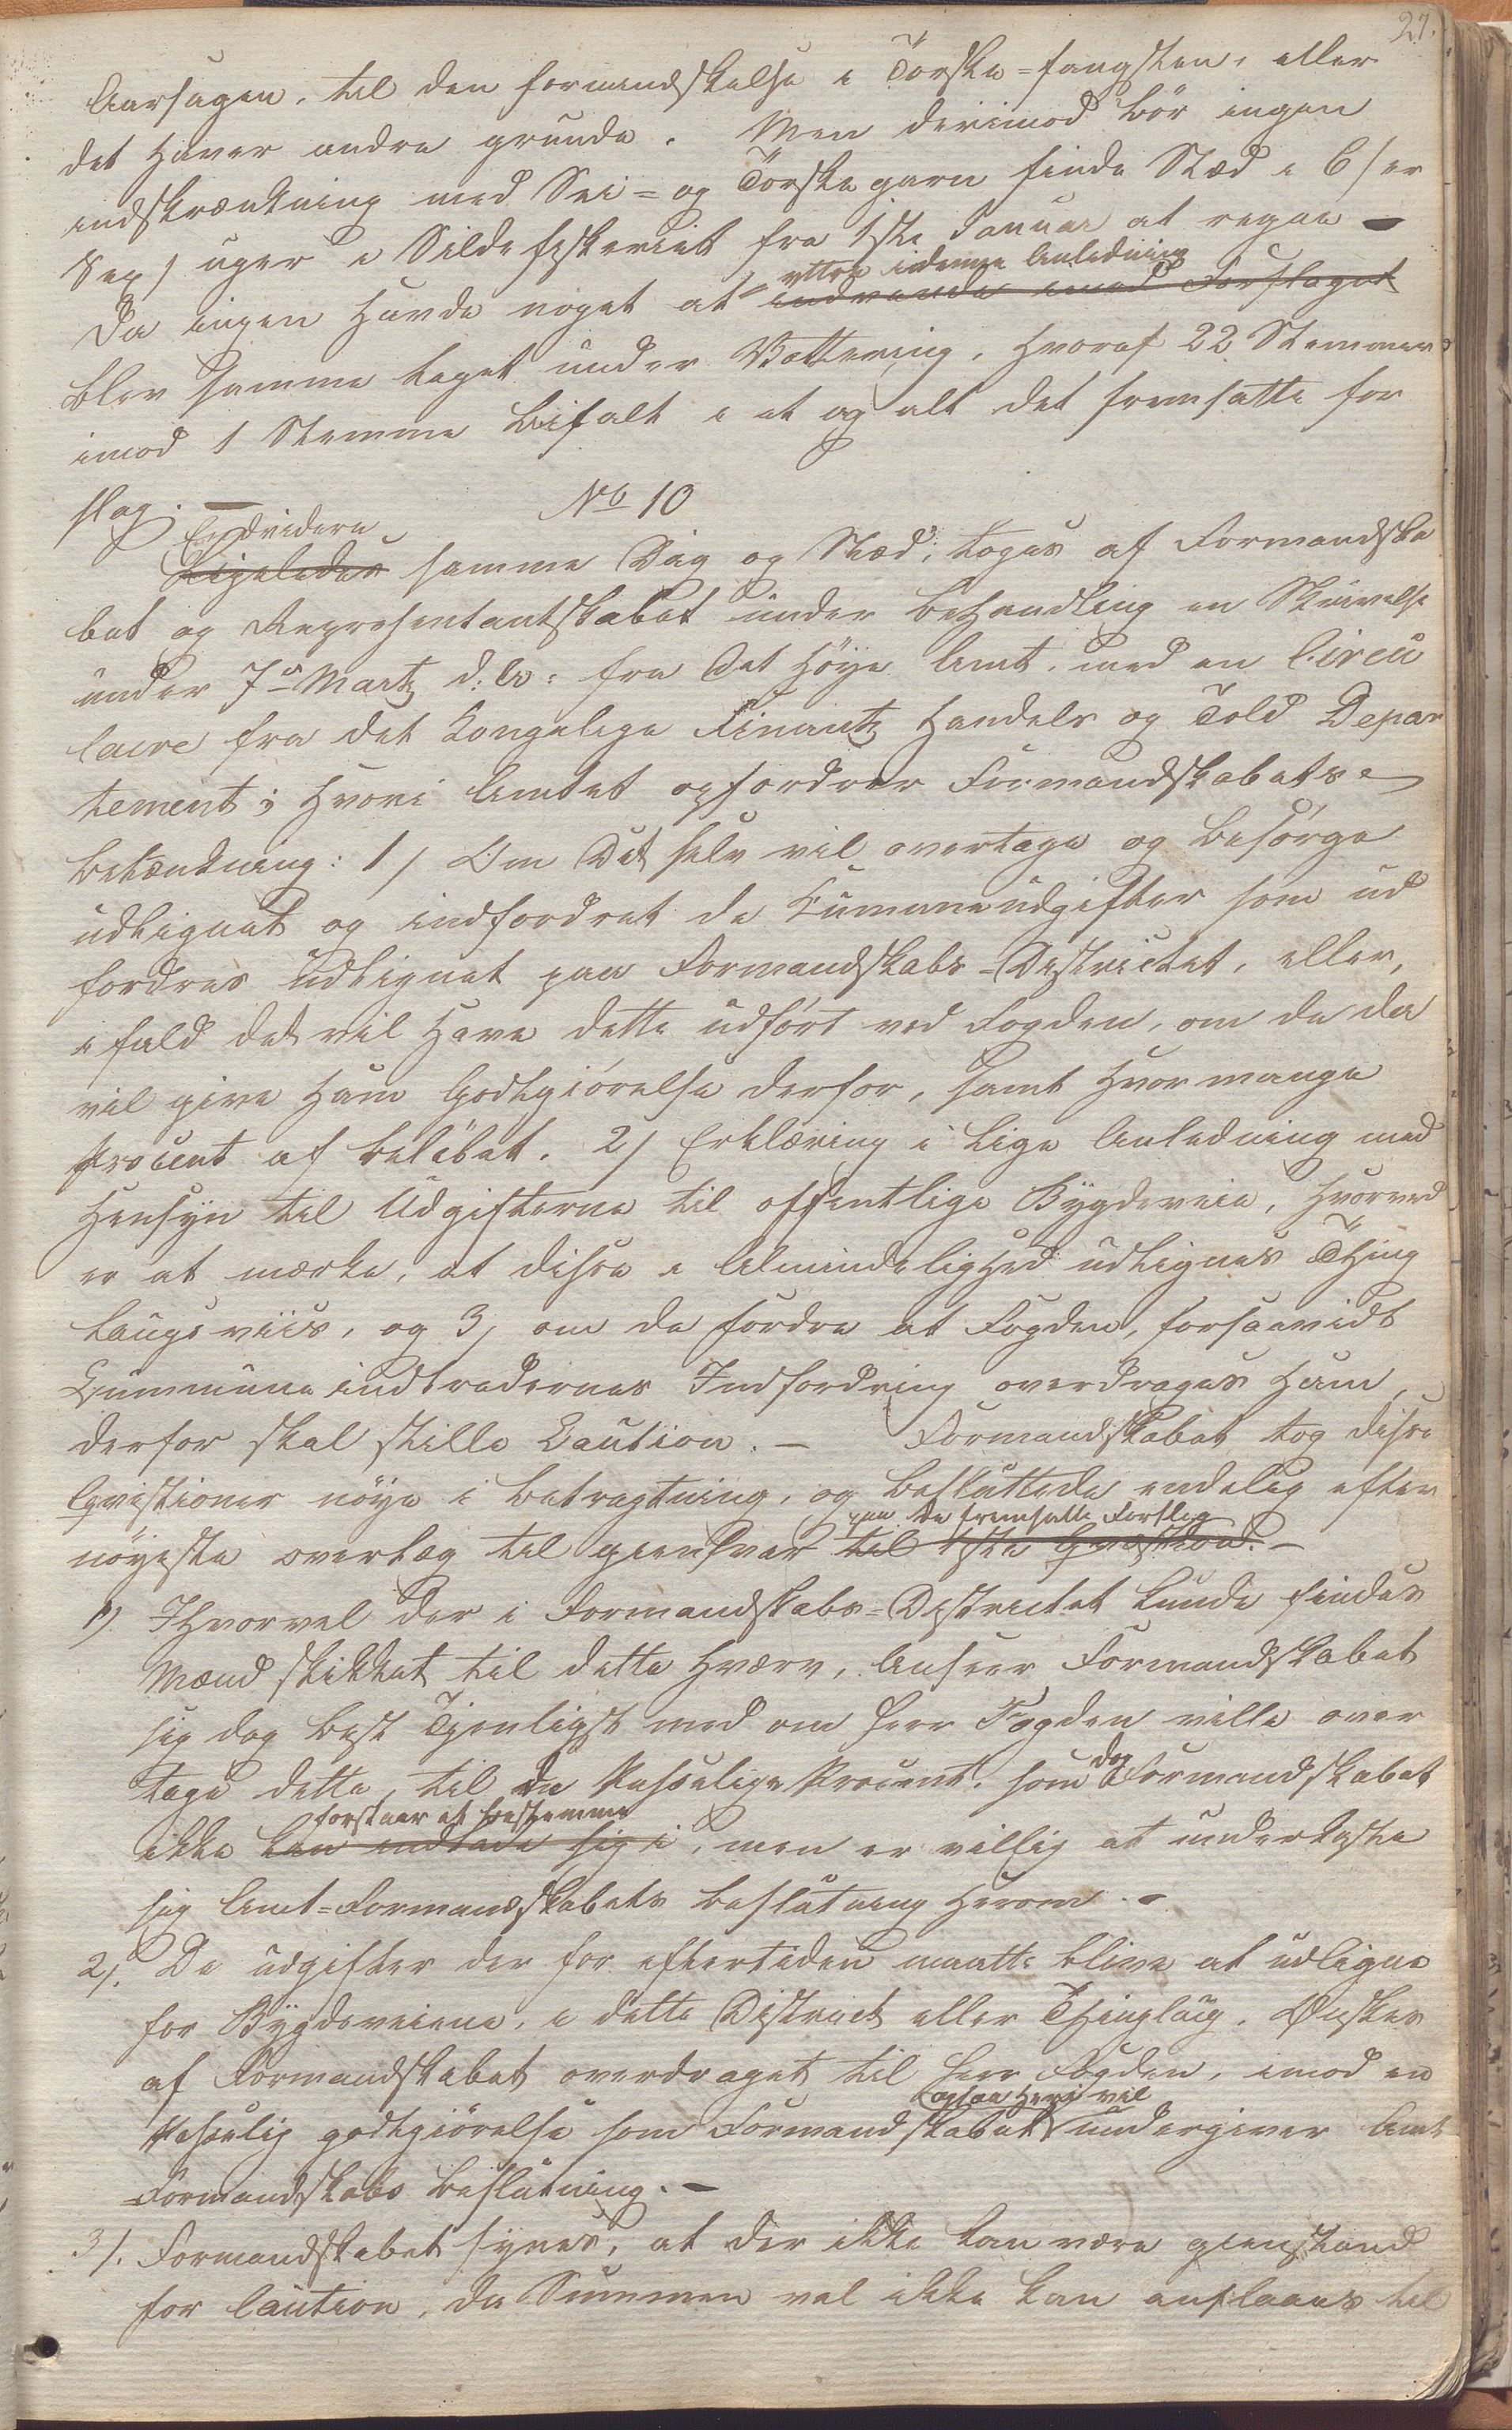 27.
Aarsagen, til den formindskelse i Torske=fangsten, eller
det haver andre grunde. Men derimod bör ingen
indskrænkning med Sei= og Törskegarn finde Stæd i 6/er
Sex/ uger i Sildefiskeriet fra 1ste Januar at regne –
yttre i denne Anledning
Da ingen havde noget at indvende imod Forslaget
blev samme taget under Vottering, hvoraf 22 Stemmer
imod 1 Stemme bifalt i et og alt det fremsatte for
slag. –
No 10
Endvidere
Ligeledes samme Dag og Stæd, toges af Formandska
bet og Representantskabet under behandling en Skrivelse
under 7de Martz d: A: fra Det Höye Amt, med en Circu
laire fra det Kongelige Finantz Handels og Told Depar
tement; hvori Amtet opfordrer Formandskabets
betænkning: 1/ Om Det selv vil overtage og besörge
udlignet og indfordret de Kumuneudgifter som ud
fordres udlignet paa Formandskabs=Districtet, eller,
i fald det vil have dette udfört ved Fogden, om de da
vil give ham Godtgiörelse derfor, samt hvor mange
Procent af belöbet. 2/ Erklæring i lige Anledning med
Hensyn til Udgifterne til offentlige Bygdeveie, hvorved
er at mærke, at disse i Almindelighed udlignes Thing
laugsviis, og 3, om de fordre at Fogden, forsaavidt
Kummuneindtrædernes Indfordring overdrages ham,
derfor skal stille Caution. – Formandskabet tog disse
Qvistioner nöye i betragtning, og besluttede endelig efter
paa de fremsatte Forslag
nöyeste overlæg til giensvar til 1ste Qvistion. –
1) Ihvorvel der i Formandskabs=Districtet kunde findes
Mænd skikket til dette hværv, Anseer Formandskabet
sig dog best Tjenligst med om Herr Fogden ville over
dog
tage dette, til de Passelige Procent, som Formandskabet
forstaar at bestemme
ikke kan indlade sig i, men er villig at underkaste
sig Amt=Formandskabets beslutning herom. –
2/. De udgifter der for eftertiden maatte blive at udligne
for Bygdeveiene, i dette District eller Thinglaug, Ønskes
af Formandskabet overdraget til Herr Fogden, imod en
ogsaa heri vil
Passelig godtgiörelse som Formandskabet undergiver Amt
=Formandskabs beslutning. –
3/. Formandskabet synes, at der ikke kan være gienstand
for Caution, da Summen vel ikke kan anslaaes til